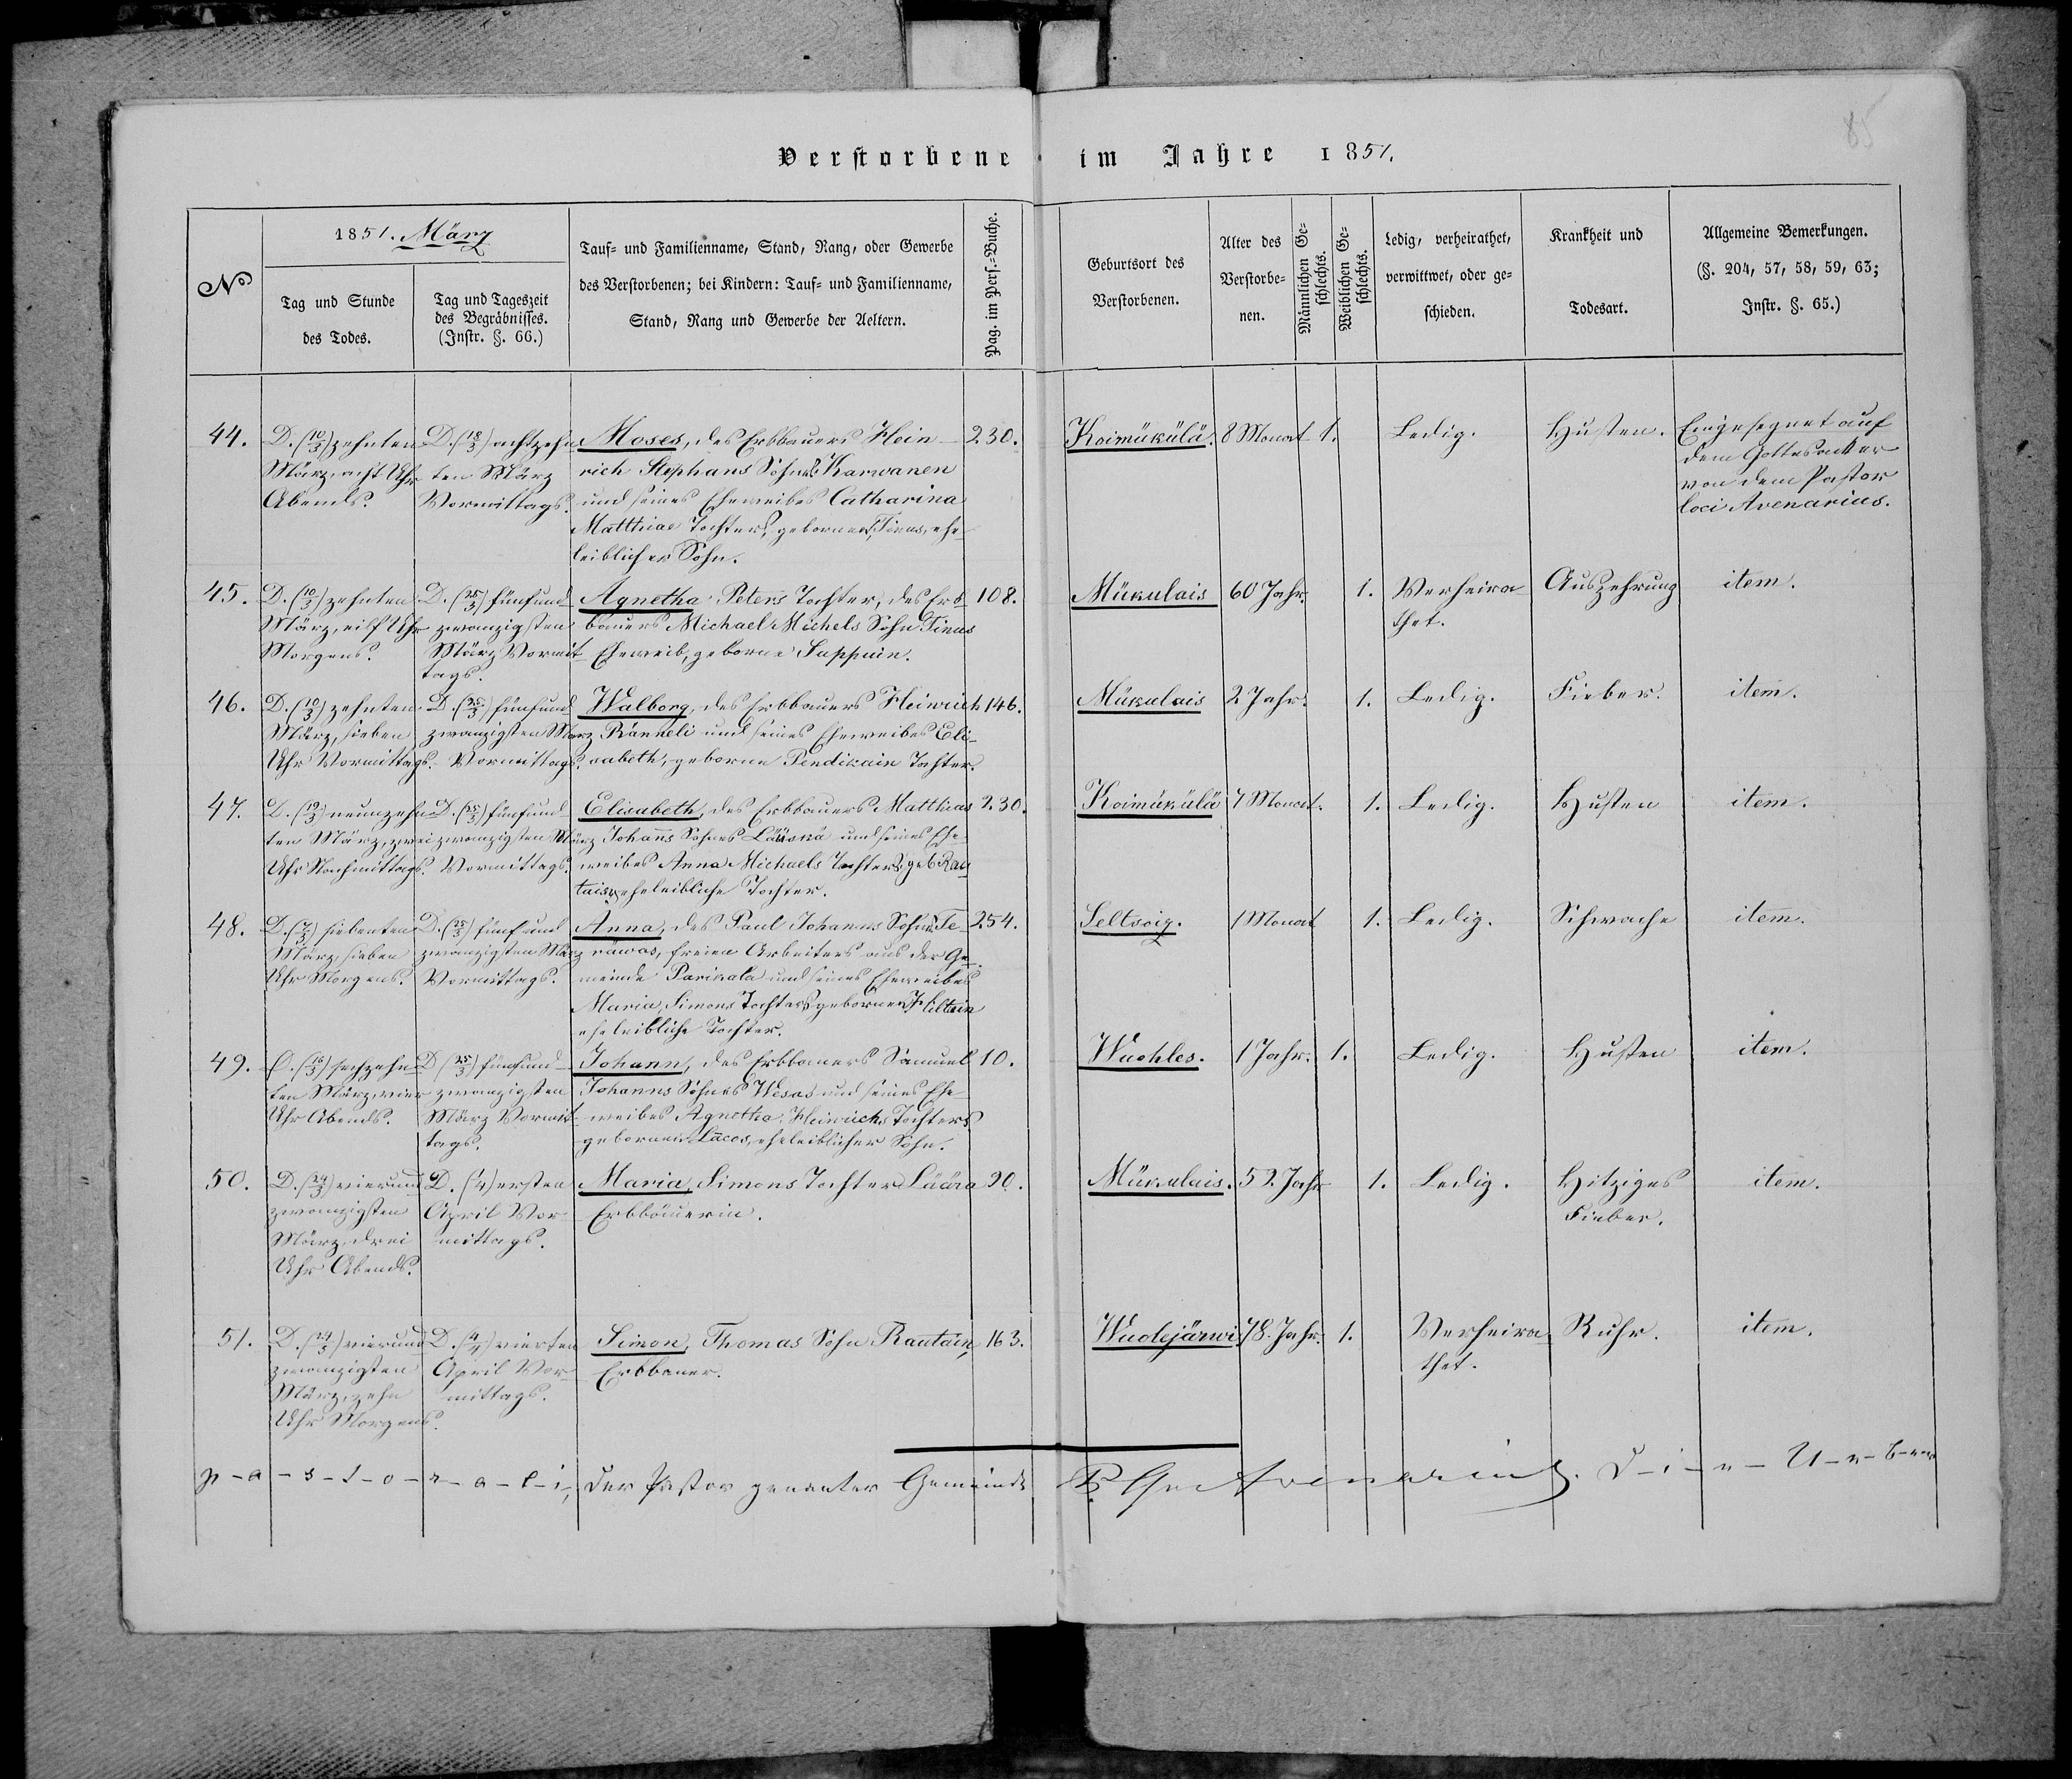 85
Verstorbene im Jahre 1851.
Nº
1851. März
Tag und Stunde
des Todes.
Tag und Tageszeit
des Begräbnisses.
(Instr. §. 66.)
Tauf- und Familienname, Stand, Rang, oder Gewerbe
des Verstorbenen; bei Kindern: Tauf- und Familienname,
Stand, Rang und Gewerbe der Aeltern.
Pag. im Pers.-Buche.
Geburtsort des
Verstorbenen.
Alter des
Verstorbe-
nen.
Männlichen Ge-
schlechts.
Weiblichen Ge-
schlechts.
Ledig, verheirathet,
verwittwet, oder ge-
schieden.
Krankheit und
Todesart.
Allgemeine Bemerkungen.
(§. 204, 57, 58, 59, 63;
Instr. §. 65.)
44.
D. (10/3) zehnten
März, acht Uhr
Abends.
D. (18/3) achtzehn
ten März
Vormittags.
Moses, des Erbbauers Hein-
rich Stephans Sohnes Karwanen
und seines Eheweibes Catharina
Matthiae Tochter, gebornen Tinus, ehe-
leiblicher Sohn.
230.
Koimükülä.
8 Monat
1.
Ledig.
Husten.
Eingesegnet auf
dem Gottesacker
von dem Pastor
loci Avenarius.
45.
D. (10/3) zehnten
März, eilf Uhr
Morgens.
D. (25/3) fünfund-
zwanzigsten
März Vormit-
tags.
Agnetha Peters Tochter, des Erb-
bauers Michael Michels Sohn Tinus
Eheweib, geborne Suppuin.
108.
Mükulais
60 Jahr.
1.
Verheira
thet.
Auszehrung
item.
46.
D. (10/3) zehnten
März, sieben
Uhr Vormittags.
D. (25/3) fünfund
zwanzigsten März
Vormittags.
Walborg, des Erbbauers Heinrich
Ränneli und seines Eheweibes Eli-
sabeth, geborne Pendikain Tochter.
146.
Mükulais
2 Jahr.
1.
Ledig.
Fieber.
item.
47.
D. (19/3) neunzehn
ten März, zwei
Uhr Nachmittags.
D. (25/3) fünfund-
zwanzigsten März
Vormittags.
Elisabeth, des Erbbauers Matthias
Johanns Sohnes Lääskä und seines Ehe-
weibes Anna Michaels Tochter, geb. Rau
tain, eheleibliche Tochter.
230.
Koimükülä
7 Monat.
1.
Ledig.
Husten
item.
48.
D. (7/3) siebenten
März, sieben
Uhr Morgens.
D. (25/3) fünfund
zwanzigsten März
Vormittags.
Anna, des Paul Johanns Sohnes Te-
räwas, freien Arbeiters aus der Ge-
meinde Parikala und seines Eheweibes
Maria, Simons Tochter, gebornen Hiltain
eheleibliche Tochter.
254.
Seltsoig.
1 Monat
1.
Ledig.
Schwache
item.
49.
D. (16/3) sechzehn
ten März, vier
Uhr Abends.
D (25/3) fünfund-
zwanzigsten
März Vormit-
tags.
Johann, des Erbbauers Samuel
Johanns Sohnes Wesas und seines Ehe-
weibes Agnetha, Heinrichs Tochters
gebornen Lacos, eheleiblicher Sohn.
10.
Wuohles.
1 Jahr.
1.
Ledig.
Husten
item.
50.
D. (24/3) vierund
zwanzigsten
März, drei
Uhr Abends.
D. (1/4) ersten
April Vor-
mittags.
Maria, Simons Tochter Läära
Erbbäuerin.
90.
Mükulais.
52 Jahr
1.
Ledig.
Hitziges
Fieber.
item.
51.
D. (24/3) vierund
zwanzigsten
März, zehn
Uhr Morgens.
D. (4/4) vierten
April Vor-
mittags.
Simon, Thomas Sohn Rautain,
Erbbauer.
163.
Wudejärwi
78. Jahr.
1.
Verheira
thet.
Ruhr.
item.
p-a-s-t-o-r-a-l-i, der Pastor genanter Gemeinde
Avenarius.